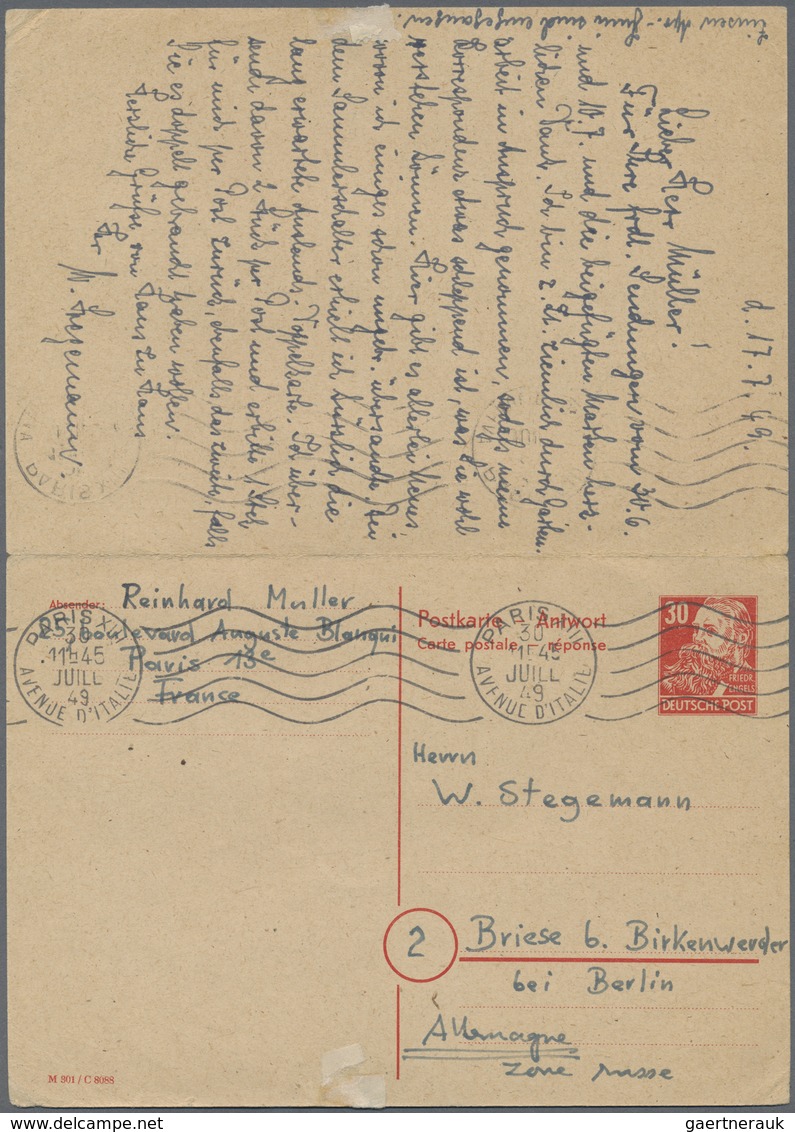 d. 17.7.49.
Lieber Herr Müller!
Für Ihre frdl. Sendungen vom 30.6.
und 10.7. und die beigefügten Marken herz-
lichen Dank. Ich bin z. Zt. ziemlich durch Garten-
arbeit in Anspruch genommen, sodaß meine
Korrespondenz etwas schleppend ist, was Sie wohl
verstehen können. Hier gibt es allerlei Neues
wovon ich einiges schon übersandte. An
dem Sammlerschalter erhielt ich kürzlich die
lang erwartete Auslands-Doppelkarte. Ich über-
sende davon 2 Stück per Post und erbitte 1 Stck
für mich per Post zurück, ebenfalls das zweite, falls
Sie es doppelt gebraucht haben wollen.
Herzliche Grüße von Haus zu Haus
Ihr
W. Stegemann.
Juni sind eingegangen.
Absender: Reinhard Muller
25 Boulevard Auguste Blanqui
Paris 13e
France
PARIS XIII
30
11H45
JUILL
49
AVENUE D'ITALIE
Postkarte - Antwort
Carte postale réponse
PARIS XIII
30
11H45
JUILL
49
AVENUE D'ITALIE
30
FRIEDR.
ENGELS
DEUTSCHE POST
Herrn
W. Stegemann
2
Briese b. Birkenwerder
bei Berlin
Allemagne
zone russe
M 301 / C 8088
gaertnerauk